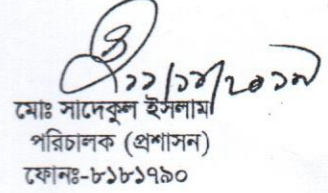 মোঃ সাদেকুল ইসলাম
পরিচালক (প্রশাসন)
ফোনঃ-৮১৮১৭৯০